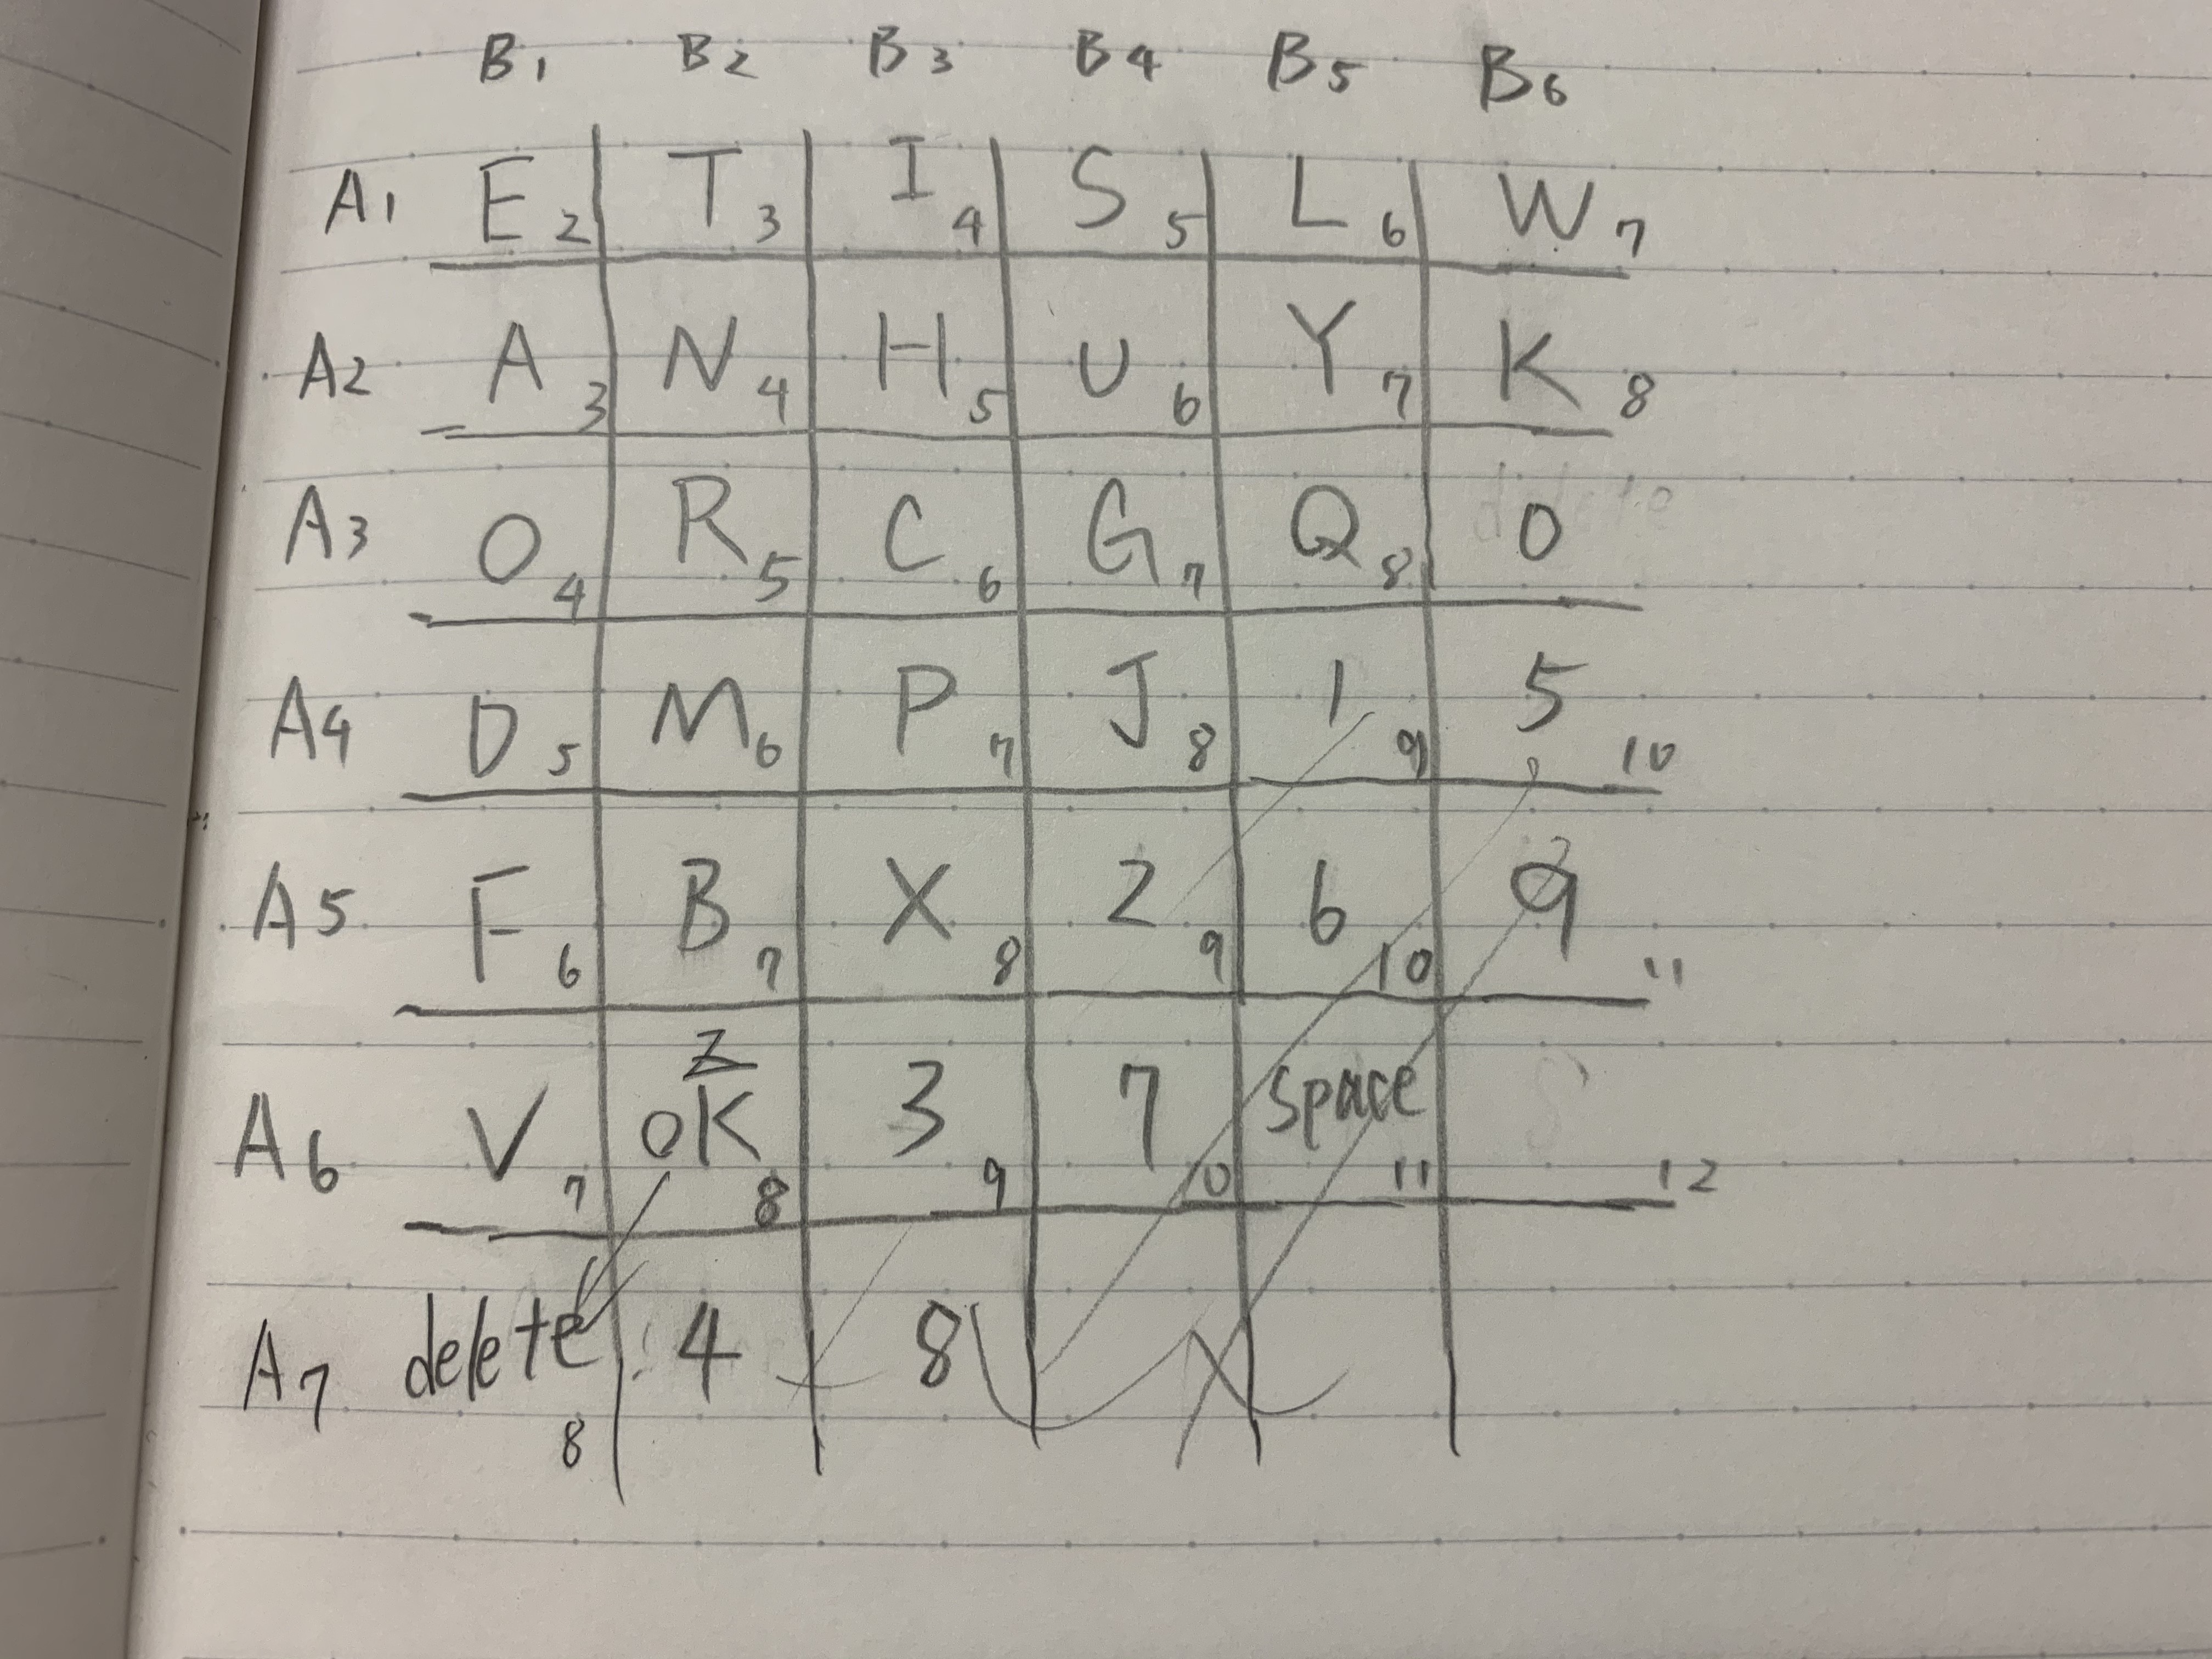 B1 B2 B3 B4 B5 B6
A1 E 2 T 3 I 4 S 5 L 6 W 7
A2 A 3 N 4 H 5 U 6 Y 7 K 8
A3 O 4 R 5 C 6 G 7 Q 8 0
A4 D 5 M 6 P 7 J 8 1 9 5 10
A5 F 6 B 7 X 8 2 9 6 10 9 11
Z
A6 V 7 OK 8 3 9 7 10 space 11 12
A7 delete 8 4 8